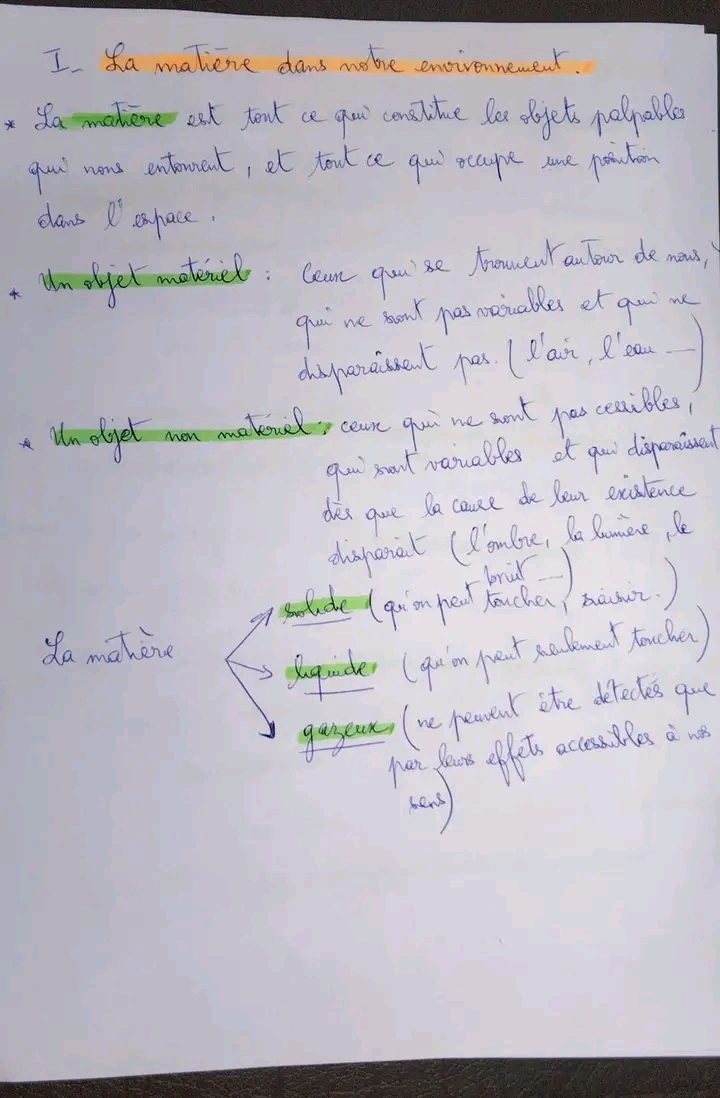 I- La matière dans notre environnement.
* La matière est tout ce qui constitue les objets palpables
qui nous entourent, et tout ce qui occupe une position
dans l'espace.
* Un objet matériel : Ceux qui se trouvent autour de nous,
qui ne sont pas variables et qui ne
disparaîssent pas. (l'air, l'eau ---)
* Un objet non matériel : ceux qui ne sont pas cessibles,
qui sont variables et qui disparaîssent
dès que la cause de leur existence
disparait (l'ombre, la lumière, le
bruit ---)
solide (qu'on peut toucher, saisir.)
La matière
liquide (qu'on peut seulement toucher)
gazeux (ne peuvent être détectés que
par leurs effets accessibles à nos
sens)